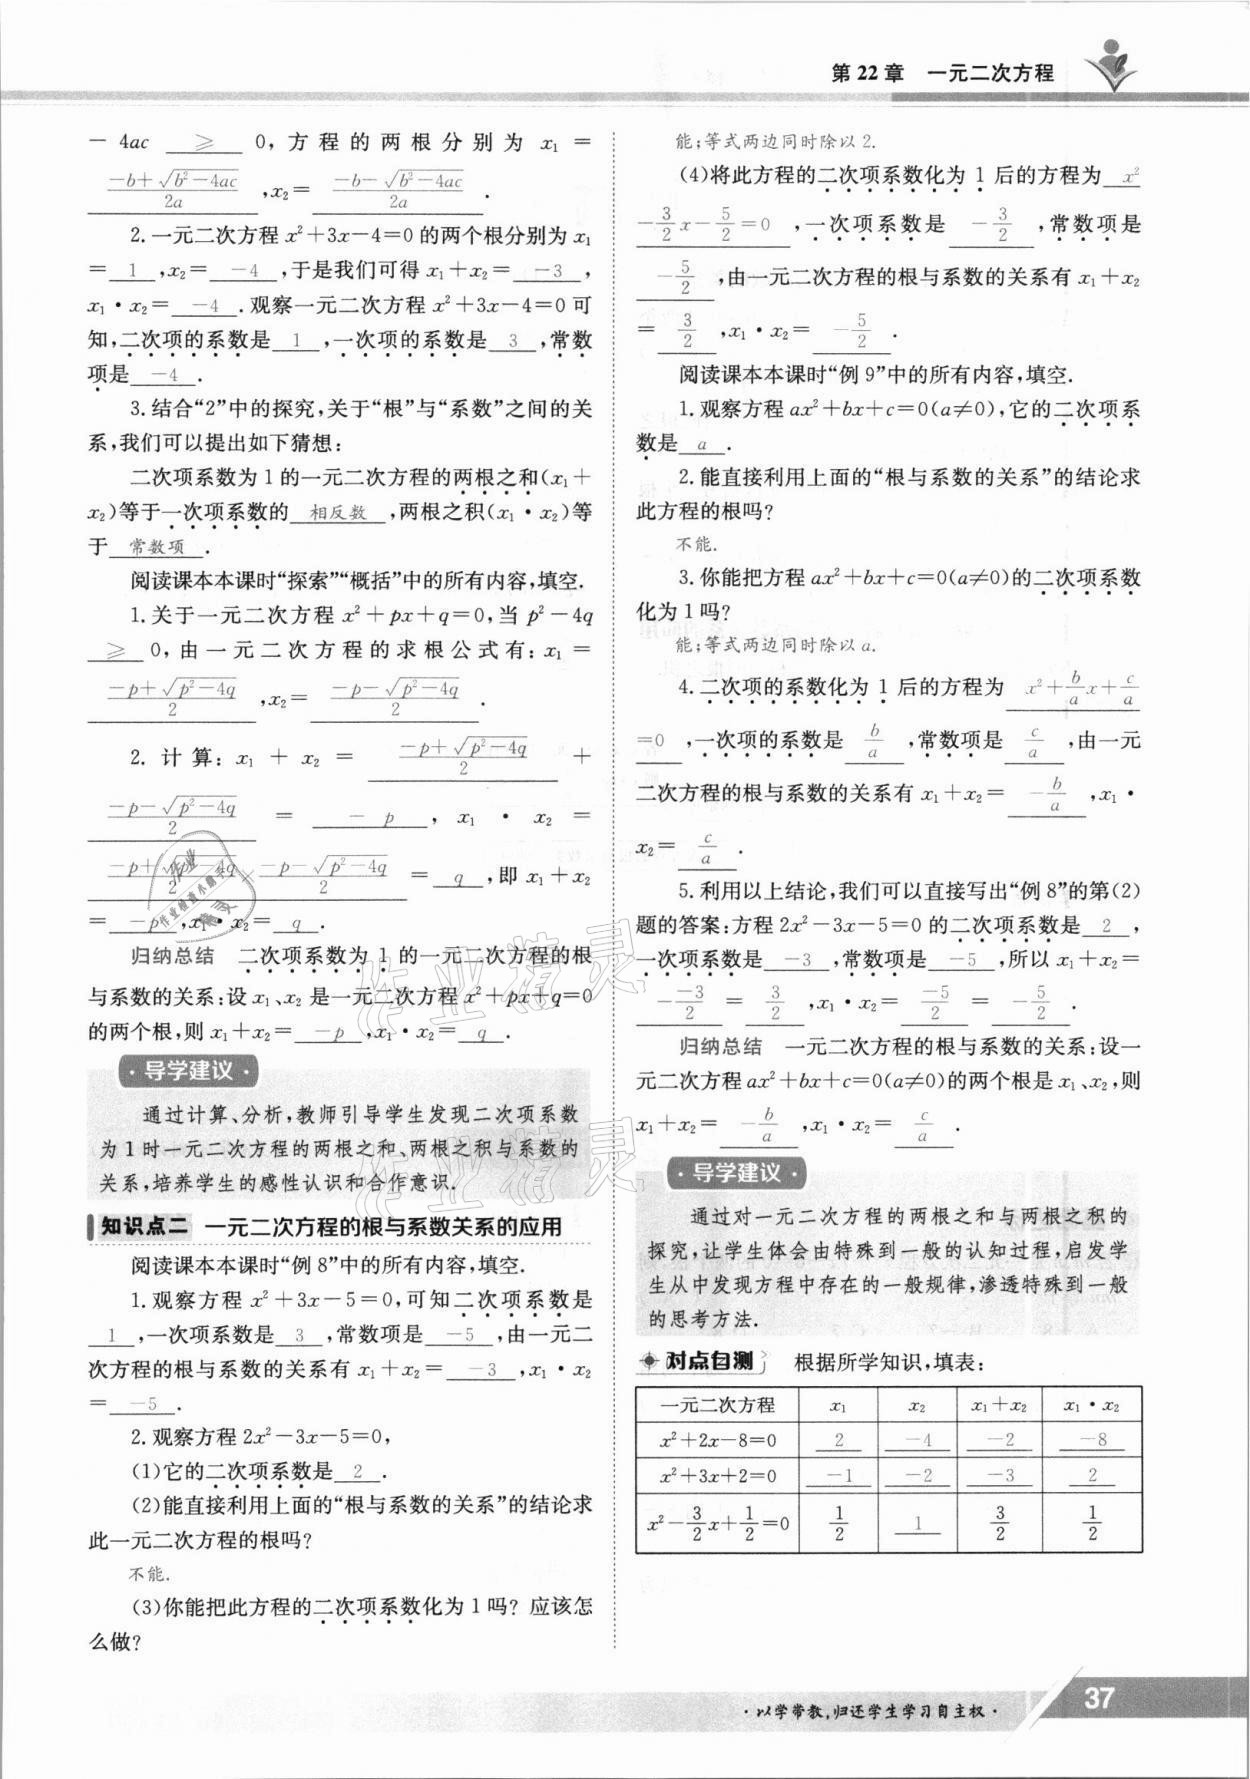 第22章 一元二次方程
－4ac ≥ 0,方程的两根分别为 x₁＝
(－b＋√(b²－4ac))/2a ,x₂＝ (－b－√(b²－4ac))/2a .
2.一元二次方程 x²＋3x－4＝0 的两个根分别为 x₁
＝ 1 ,x₂＝ －4 ,于是我们可得 x₁＋x₂＝ －3 ,
x₁·x₂＝ －4 .观察一元二次方程 x²＋3x－4＝0 可
知,二次项的系数是 1 ,一次项的系数是 3 ,常数
项是 －4 .
3.结合“2”中的探究,关于“根”与“系数”之间的关
系,我们可以提出如下猜想:
二次项系数为 1 的一元二次方程的两根之和(x₁＋
x₂)等于一次项系数的 相反数 ,两根之积(x₁·x₂)等
于 常数项 .
阅读课本本课时“探索”“概括”中的所有内容,填空.
1.关于一元二次方程 x²＋px＋q＝0,当 p²－4q
≥ 0,由一元二次方程的求根公式有:x₁＝
(－p＋√(p²－4q))/2 ,x₂＝ (－p－√(p²－4q))/2 .
2.计算:x₁＋x₂＝ (－p＋√(p²－4q))/2 ＋
(－p－√(p²－4q))/2 ＝ －p ,x₁·x₂＝
(－p＋√(p²－4q))/2 · (－p－√(p²－4q))/2 ＝ q ,即 x₁＋x₂
＝ －p ,x₁·x₂＝ q .
归纳总结 二次项系数为 1 的一元二次方程的根
与系数的关系:设 x₁、x₂ 是一元二次方程 x²＋px＋q＝0
的两个根,则 x₁＋x₂＝ －p ,x₁·x₂＝ q .
·导学建议·
通过计算、分析,教师引导学生发现二次项系数
为 1 时一元二次方程的两根之和、两根之积与系数的
关系,培养学生的感性认识和合作意识.
知识点二 一元二次方程的根与系数关系的应用
阅读课本本课时“例 8”中的所有内容,填空.
1.观察方程 x²＋3x－5＝0,可知二次项系数是
1 ,一次项系数是 3 ,常数项是 －5 ,由一元二
次方程的根与系数的关系有 x₁＋x₂＝ －3 ,x₁·x₂
＝ －5 .
2.观察方程 2x²－3x－5＝0,
(1)它的二次项系数是 2 .
(2)能直接利用上面的“根与系数的关系”的结论求
此一元二次方程的根吗?
不能.
(3)你能把此方程的二次项系数化为 1 吗? 应该怎
么做?
能;等式两边同时除以 2.
(4)将此方程的二次项系数化为 1 后的方程为 x²
－3/2x－5/2＝0 ,一次项系数是 －3/2 ,常数项是
－5/2 ,由一元二次方程的根与系数的关系有 x₁＋x₂
＝ 3/2 ,x₁·x₂＝ －5/2 .
阅读课本本课时“例 9”中的所有内容,填空.
1.观察方程 ax²＋bx＋c＝0(a≠0),它的二次项系
数是 a .
2.能直接利用上面的“根与系数的关系”的结论求
此方程的根吗?
不能.
3.你能把方程 ax²＋bx＋c＝0(a≠0)的二次项系数
化为 1 吗?
能;等式两边同时除以 a.
4.二次项的系数化为 1 后的方程为 x²＋b/a x＋c/a
＝0 ,一次项的系数是 b/a ,常数项是 c/a ,由一元
二次方程的根与系数的关系有 x₁＋x₂＝ －b/a ,x₁·
x₂＝ c/a .
5.利用以上结论,我们可以直接写出“例 8”的第(2)
题的答案:方程 2x²－3x－5＝0 的二次项系数是 2 ,
一次项系数是 －3 ,常数项是 －5 ,所以 x₁＋x₂＝
－－3/2 ＝ 3/2 ,x₁·x₂＝ －5/2 ＝ －5/2 .
归纳总结 一元二次方程的根与系数的关系:设一
元二次方程 ax²＋bx＋c＝0(a≠0)的两个根是 x₁、x₂,则
x₁＋x₂＝ －b/a ,x₁·x₂＝ c/a .
·导学建议·
通过对一元二次方程的两根之和与两根之积的
探究,让学生体会由特殊到一般的认知过程,启发学
生从中发现方程中存在的一般规律,渗透特殊到一般
的思考方法.
对点自测 根据所学知识,填表:
一元二次方程 x₁ x₂ x₁＋x₂ x₁·x₂
x²＋2x－8＝0 2 －4 －2 －8
x²＋3x＋2＝0 －1 －2 －3 2
x²－3/2x＋1/2＝0 1/2 1 3/2 1/2
·以学带教,归还学生学习自主权·
37
作业精灵
作业精灵